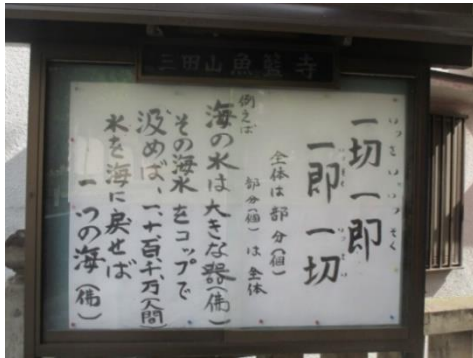 三田山魚籃寺
一切一即
一即一切
全体は部分(個)
部分(個)は全体
例えば
海の水は大きな器(佛)
その海水をコップで
汲めば、一、十、百、千、万(人間)
水を海に戻せば
一つの海(佛)